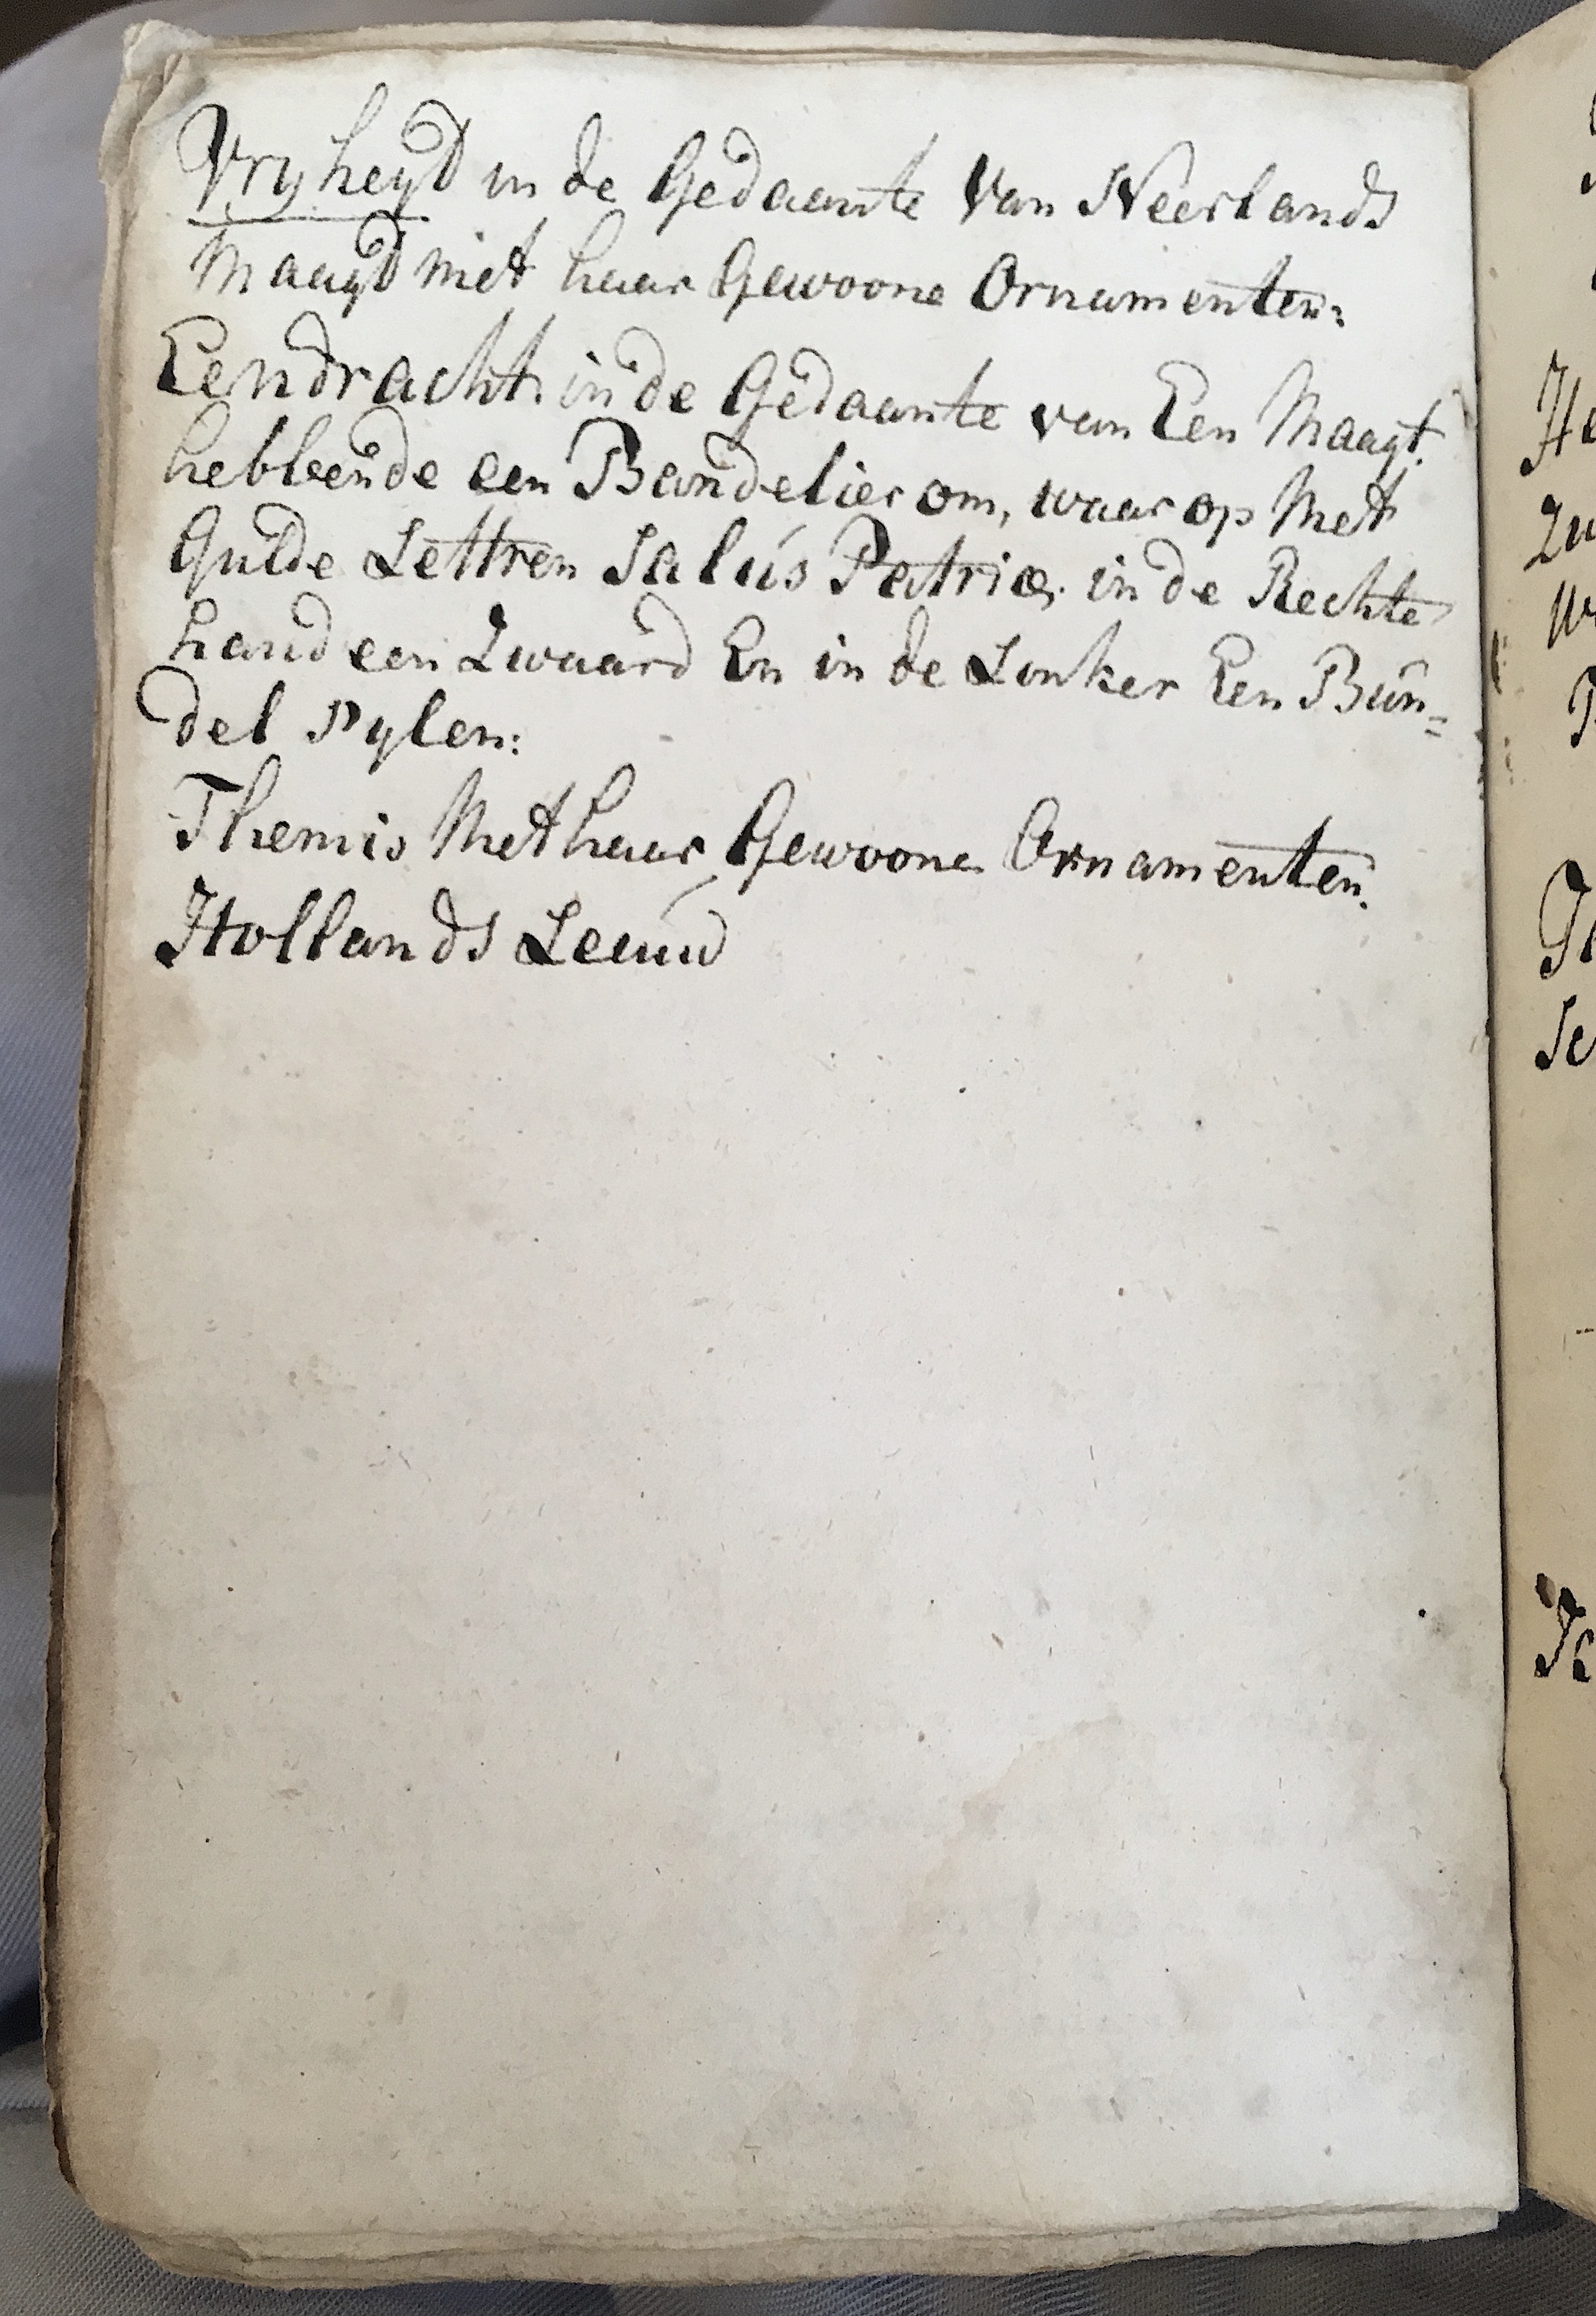 Vryheyd in de Gedaante Van Neerlands
Maagd met haar Gewoone Ornamenten:
Eendracht in de Gedaante van Een Maagt.
hebbende een Bandelier om, waar op Met
Gulde Lettren Salús Patriæ. in de Rechte
hand een Zwaard En in de Linker Een Bun=
del Pylen:
Themis Met haar Gewoone Ornamenten.
Hollands Leeuw